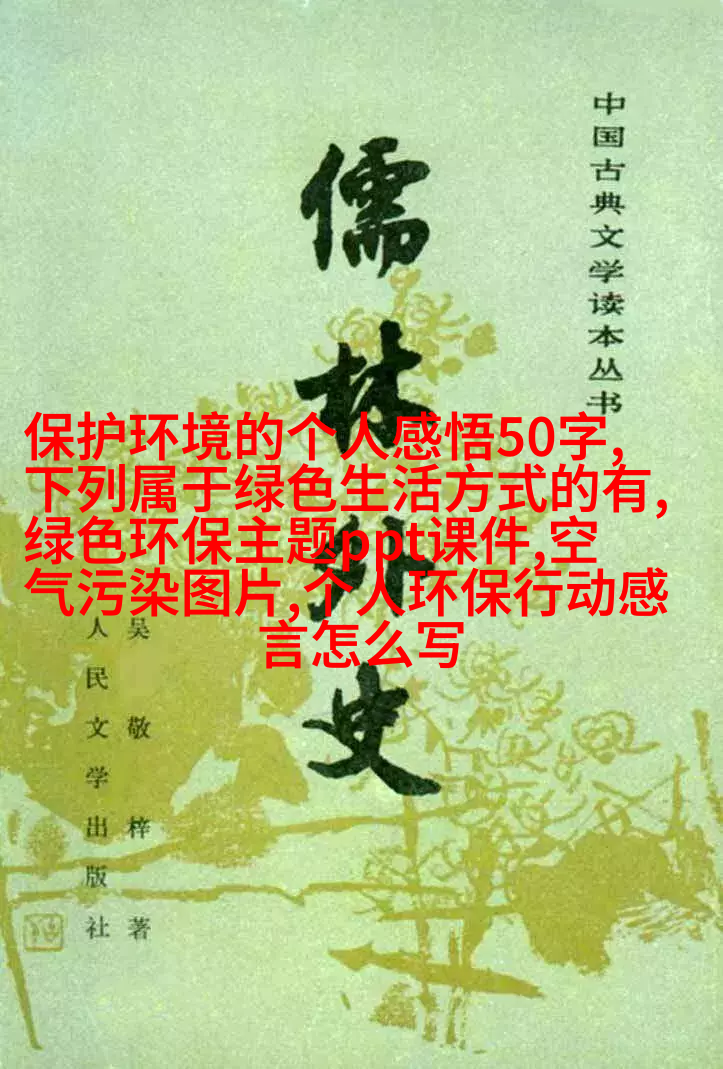 中国古典文学读本丛书
儒林外史
保护环境的个人感悟50字,
下列属于绿色生活方式的有,
绿色环保主题ppt课件,空
气污染图片,个人环保行动感
言怎么写
吴敬梓著
人民文学出版社